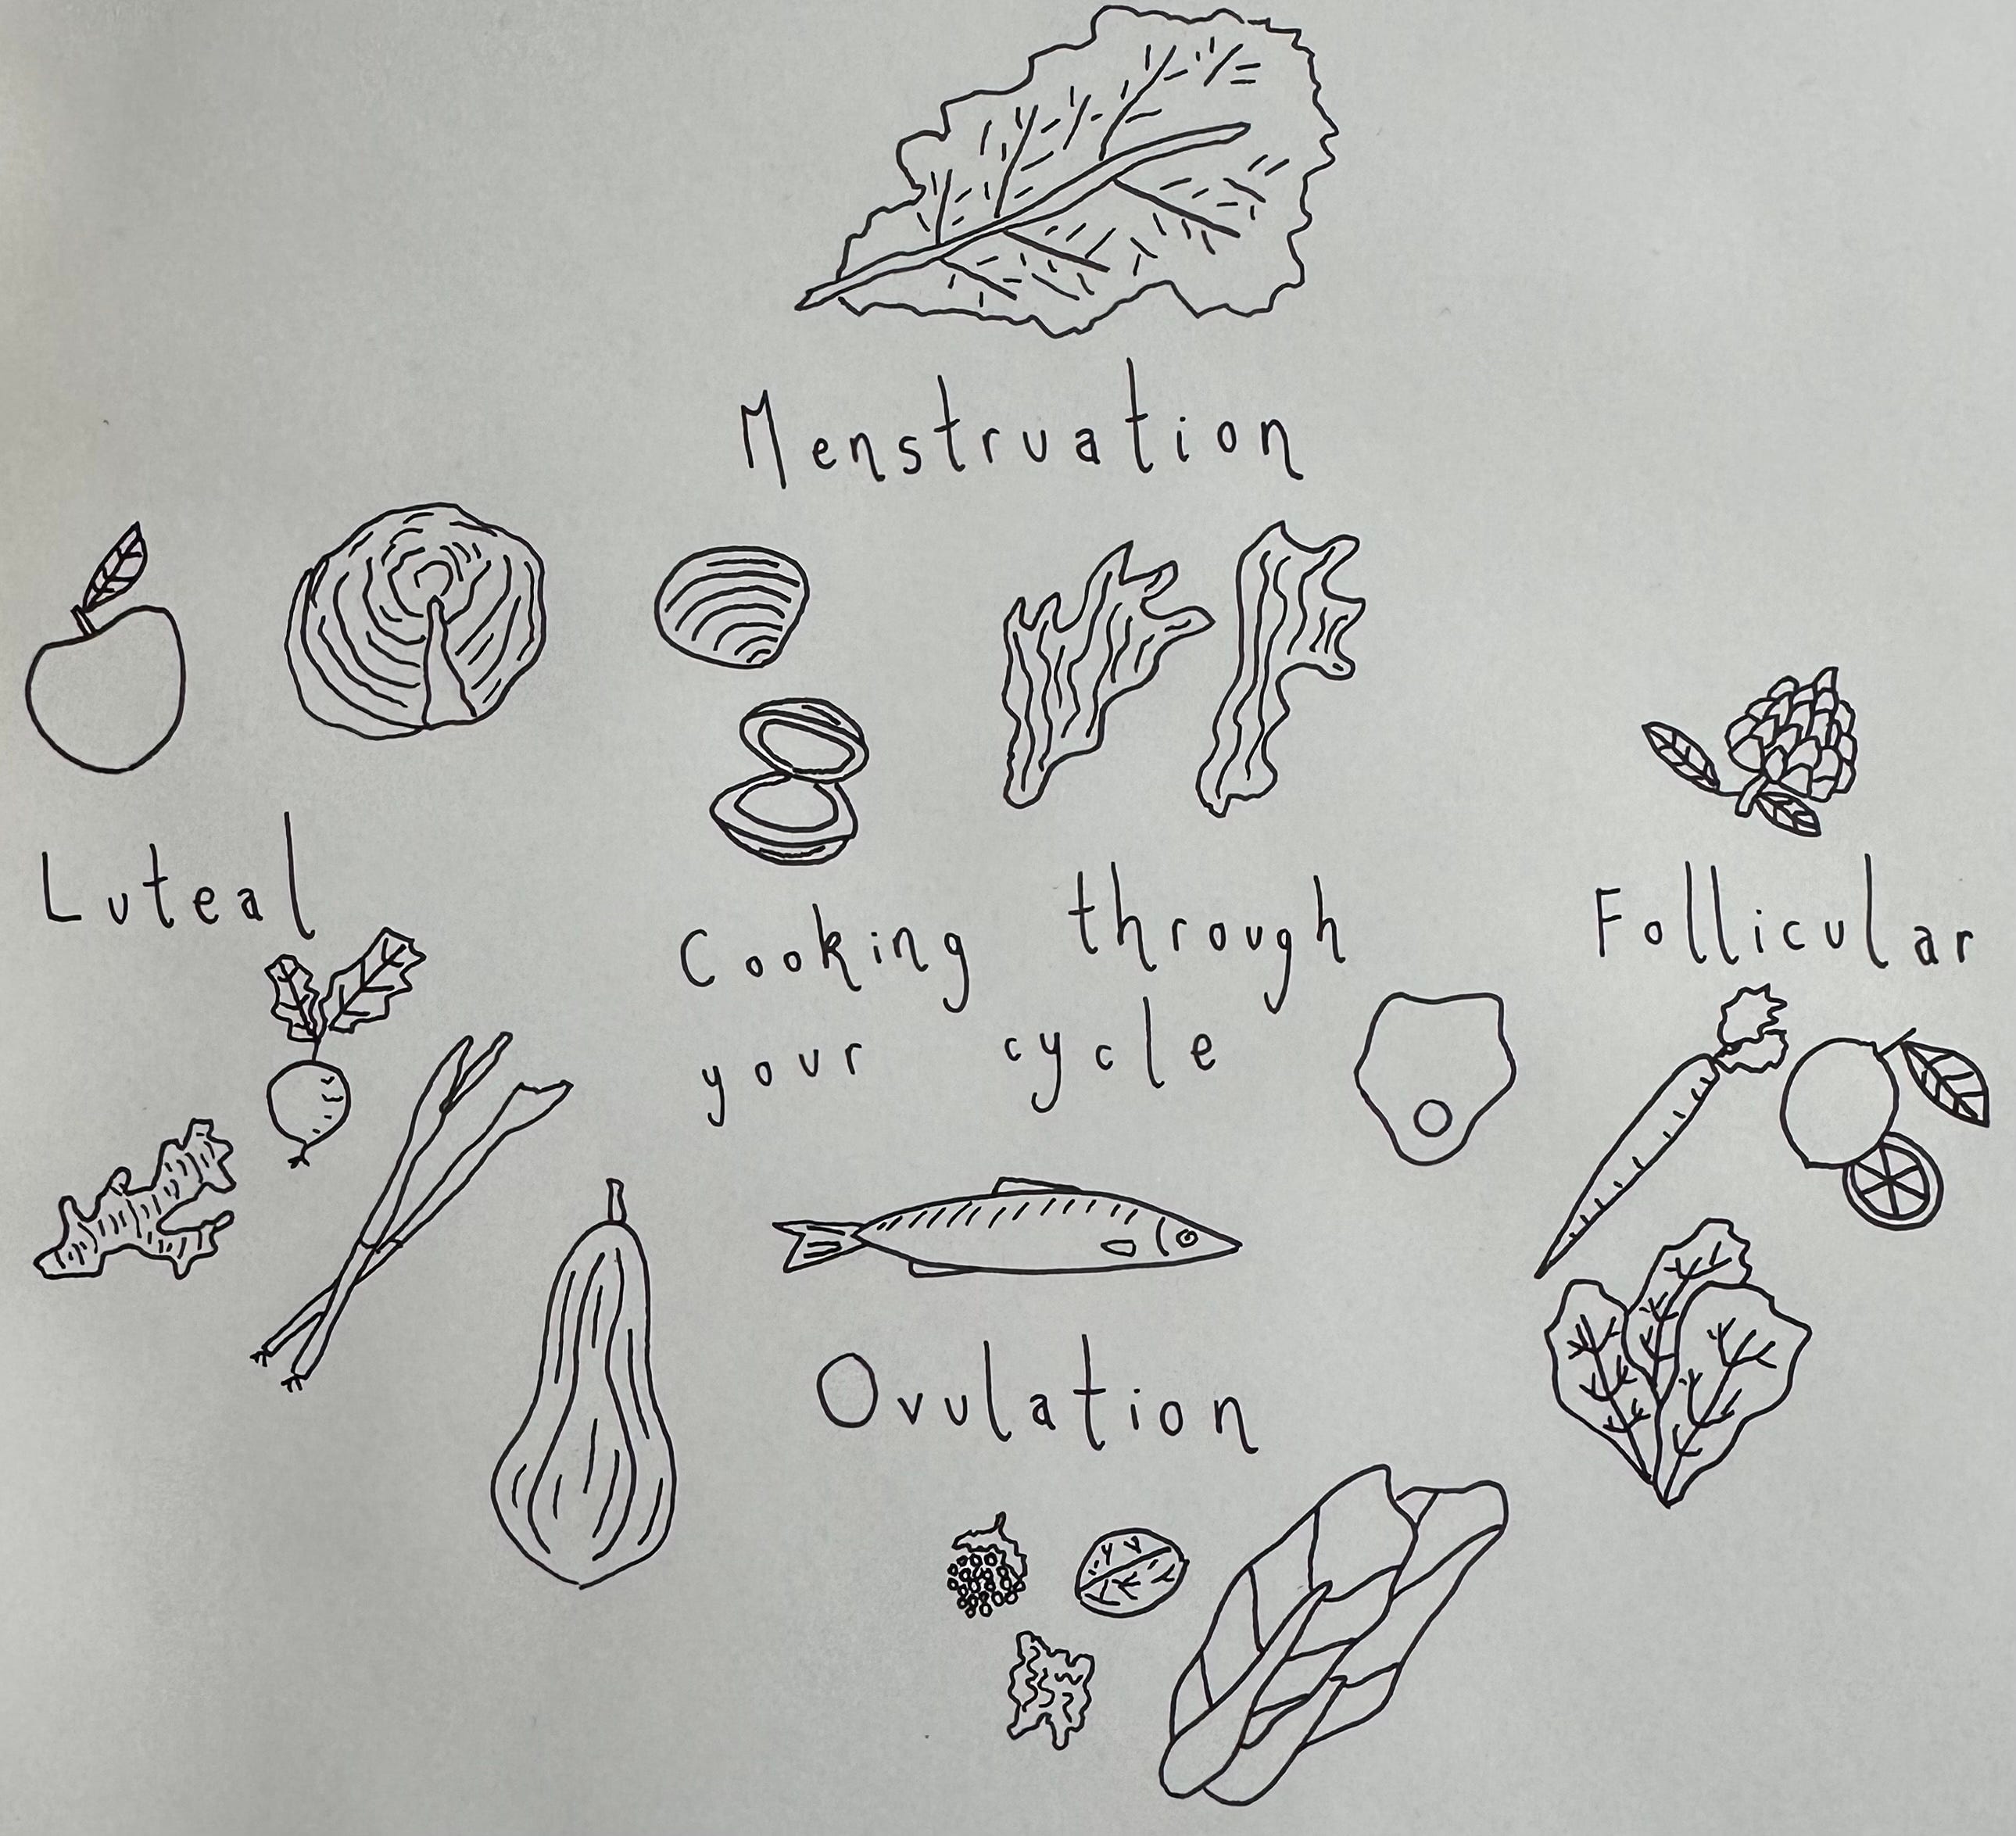 Menstruation
Luteal
Cooking through
your cycle
Follicular
Ovulation